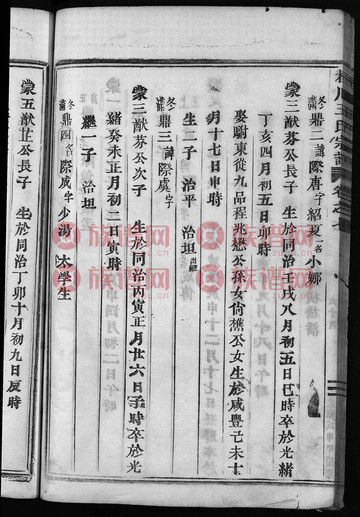 冬鼎二諱際唐字紹夏一名小鄉
蒙三猷芬公長子 生於同治壬戌八月初五日巳時卒於光緒
丁亥四月初五日卯時
娶駙東從九品程兆懋公孫女尚樵公女生於咸豐己未十
月十七日申時
生二子 治平 治坦出繼
冬鼎三諱際虞字
蒙三猷芬公次子 生於同治丙寅正月廿六日子時卒於光
緒癸未正月初二日寅時
繼一子 治坦
冬鼎四諱際咸字少湯 太學生
蒙五猷芷公長子 生於同治丁卯十月初九日辰時
族譜网